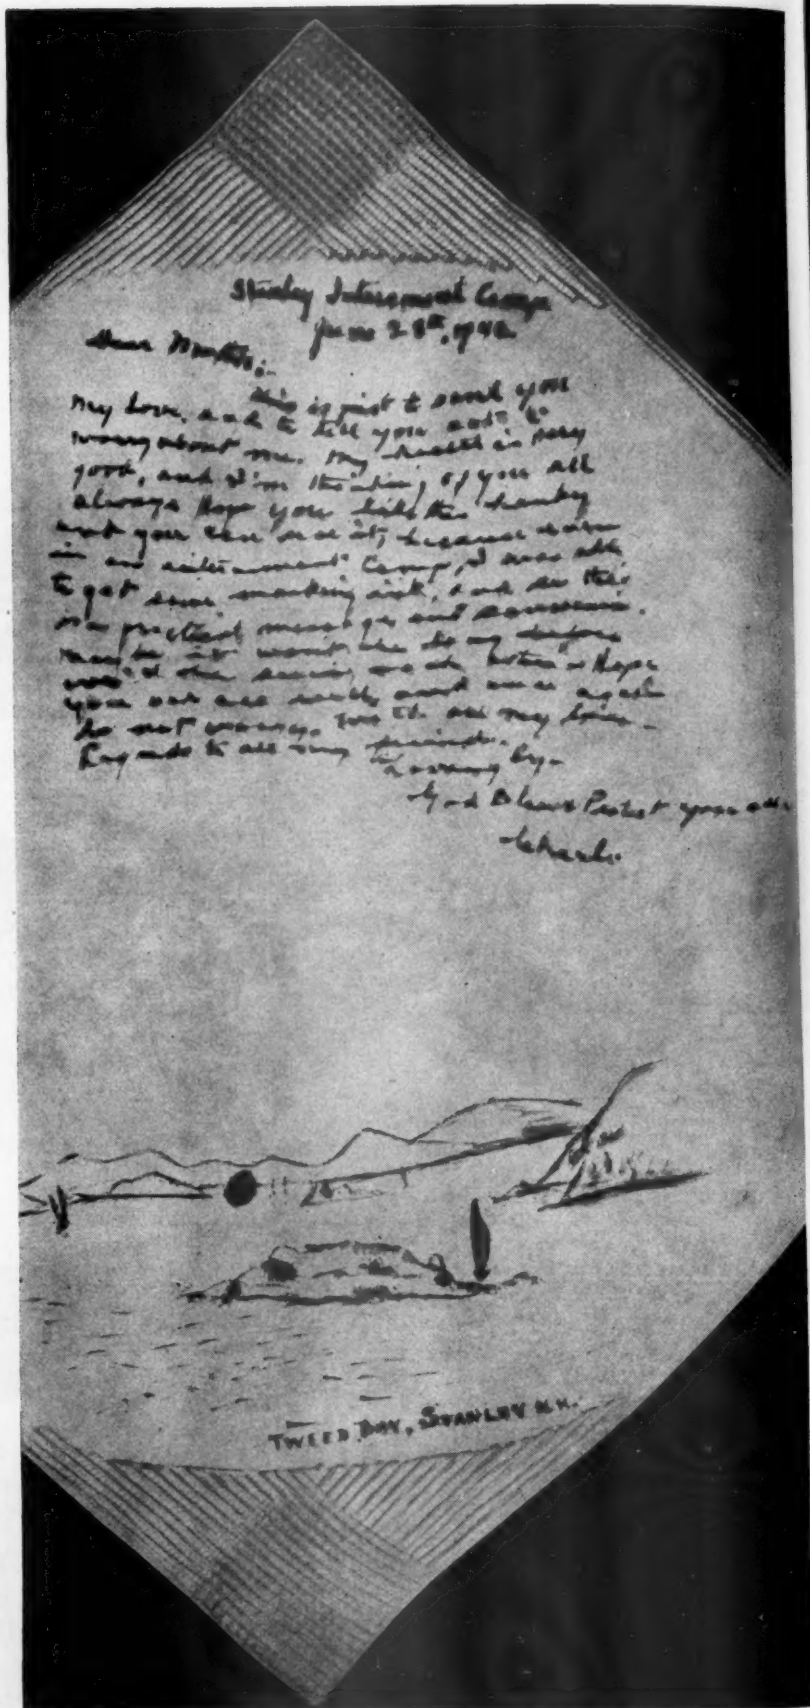 Stanley Internment Camp
June 28th, 1942
Dear Mother:-
This is just to send you
my love, and to tell you not to
worry about me. My health is very
good, and I'm thinking of you all
always Hope you like this hanky
and you can use it, because even
in an internment Camp, I was able
to get some marking ink, and so this
is a practical message and souvenir.
may be it wont the
the Hope
you are all well and once again
do not worry. with all my love -
Regards to all my friends.
Loving by-
God Bless & Protect you all
Charles
TWEED BAY, STANLEY H.K.